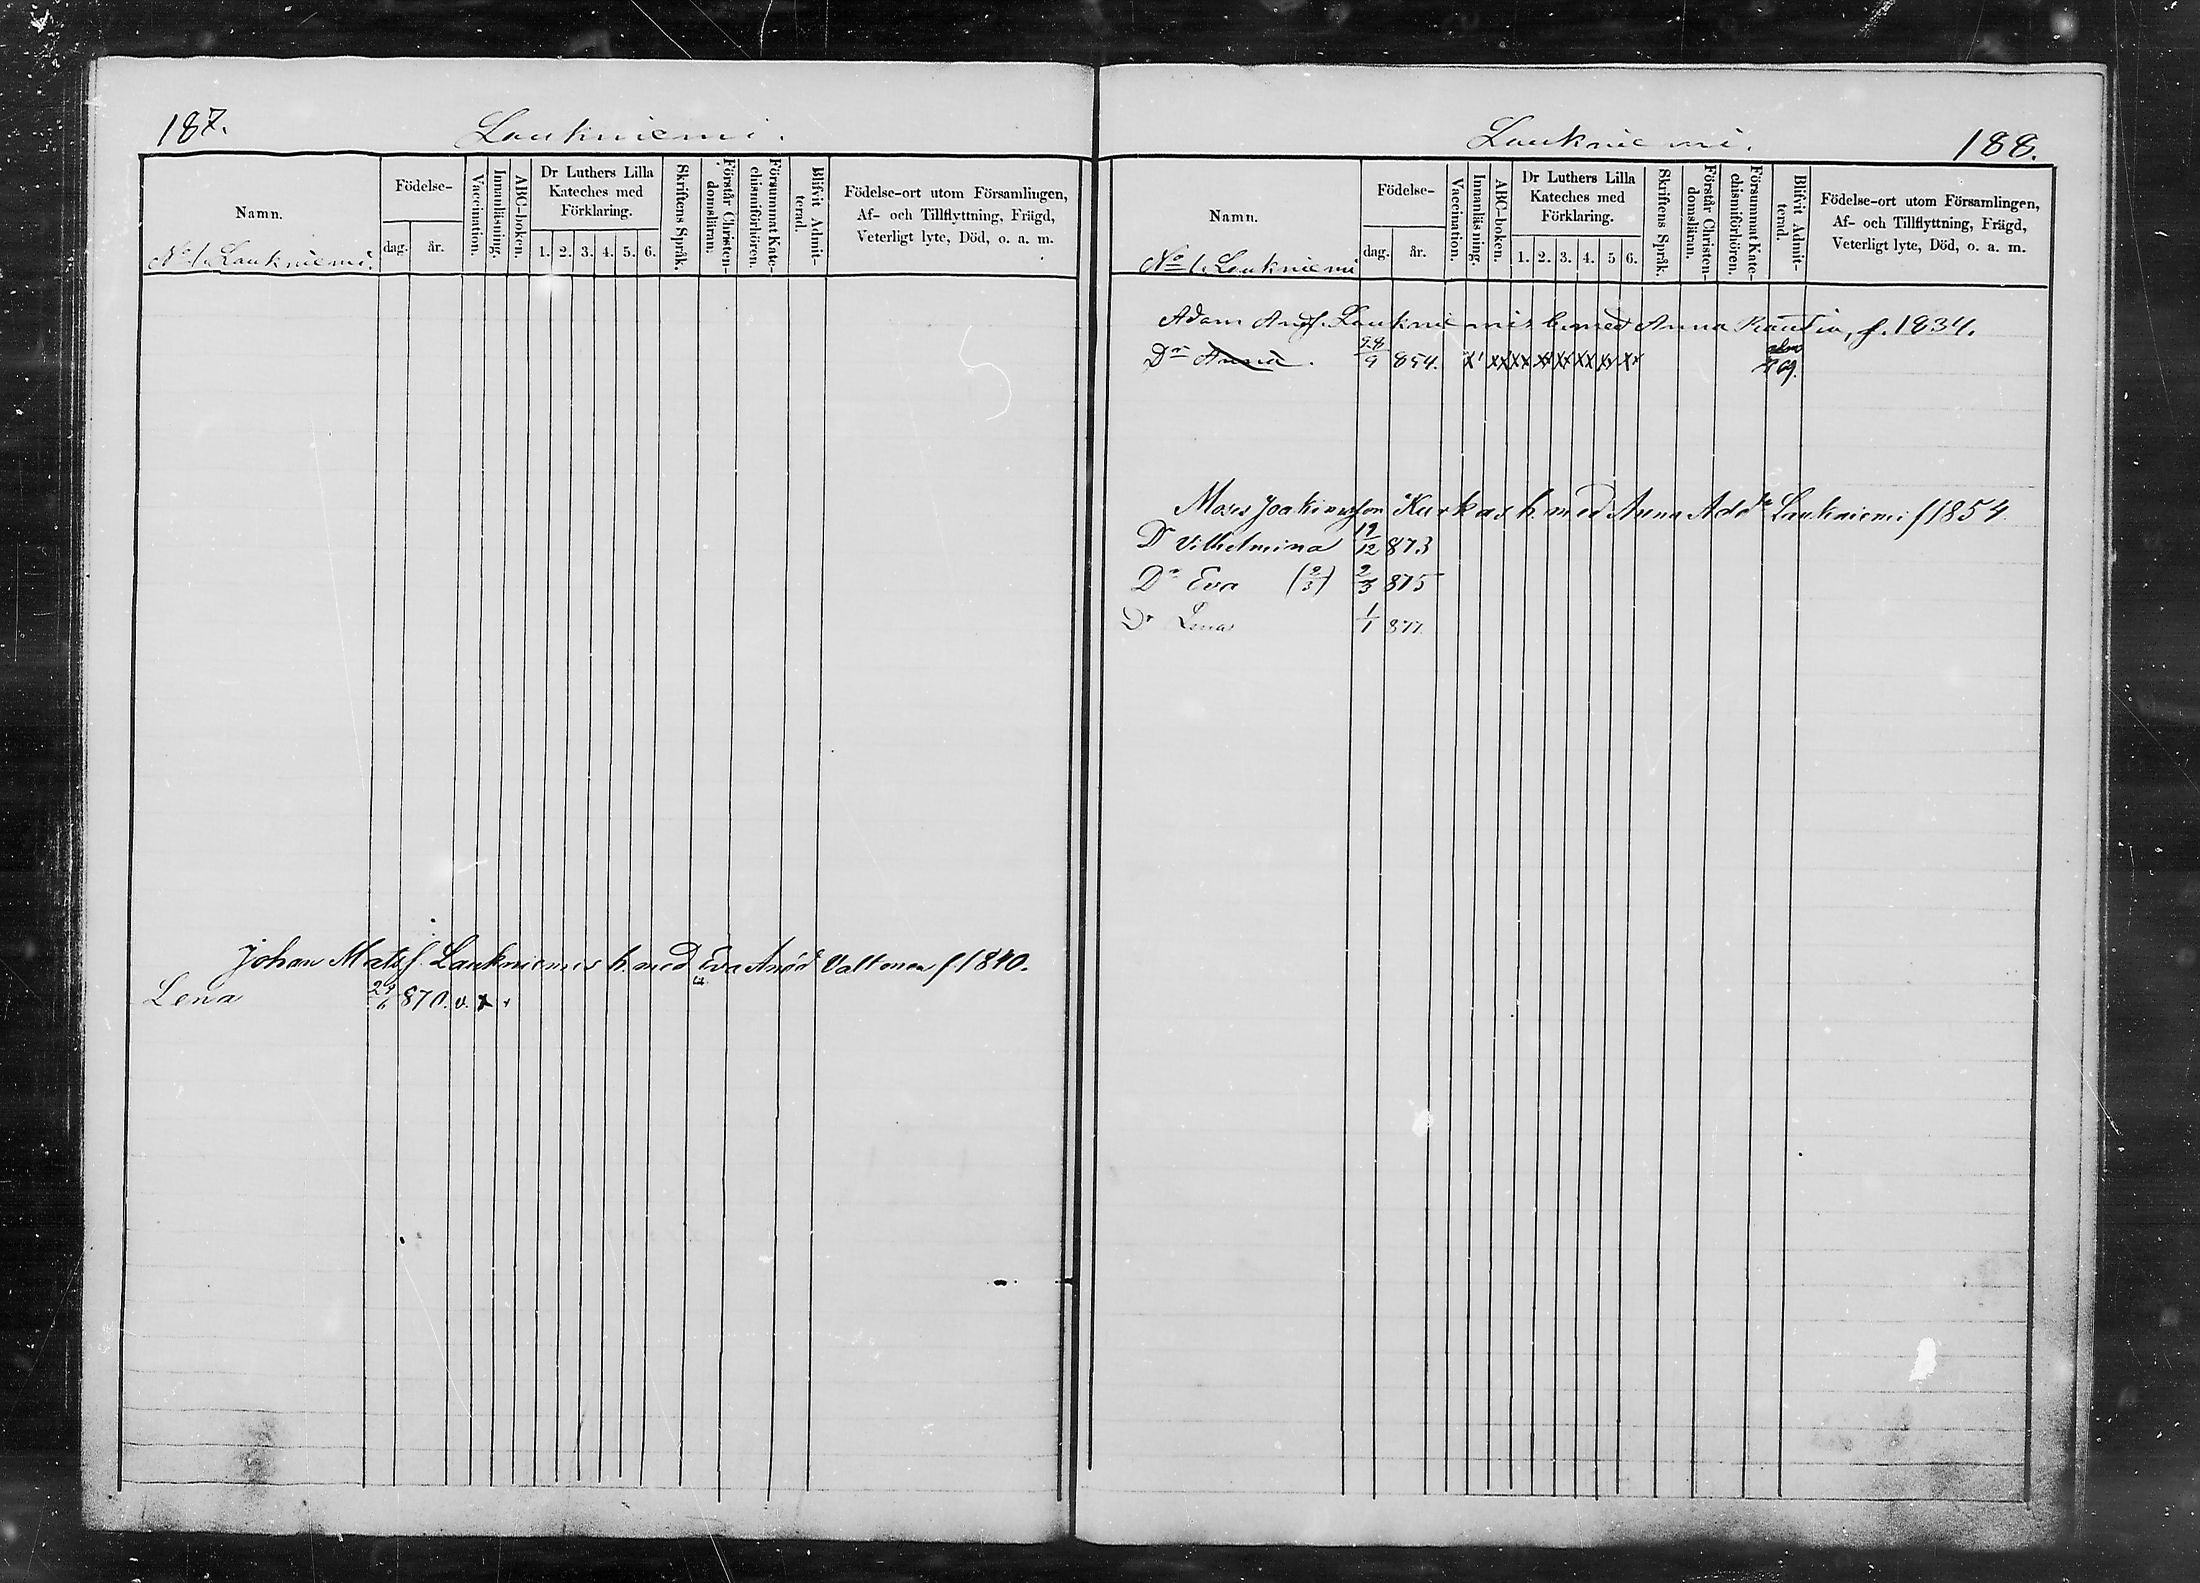 187.
Laukniemi.
Namn.
Födelse-
dag.
år.
Vaccination.
Innanläsning.
ABC-boken.
Dr Luthers Lilla
Kateches med
Förklaring.
1. 2. 3. 4. 5. 6.
Skriftens Språk.
Förstår Christen-
domsläran.
Försummat Kate-
chismiförhören.
Blifvit Admit-
terad.
Födelse-ort utom Församlingen,
Af- och Tillflyttning, Frägd,
Veterligt lyte, Död, o. a. m.
No 1. Laukniemi.
Johan Matsf. Laukniemis h. med Eva Valtonen f. 1840.
Lena 870. v. x
Laukniemi.
188.
Namn.
Födelse-
dag.
år.
Vaccination.
Innanläsning.
ABC-boken.
Dr Luthers Lilla
Kateches med
Förklaring.
1. 2. 3. 4. 5 6.
Skriftens Språk.
Förstår Christen-
domsläran.
Försummat Kate-
chismiförhören.
Blifvit Admit-
terad.
Födelse-ort utom Församlingen,
Af- och Tillflyttning, Frägd,
Veterligt lyte, Död, o. a. m.
No 1. Laukniemi
Adam Laukniemis h. med Anna Rautia, f. 1834.
Dr Anna. 28/9 854.
Moses Joakimsson Kurkas h. med Anna Add Laukniemi f 1854.
Dr Vilhelmina 19/12 873
Dr Eva (2/3) 2/3 875
Dr Lena 1/1 877.